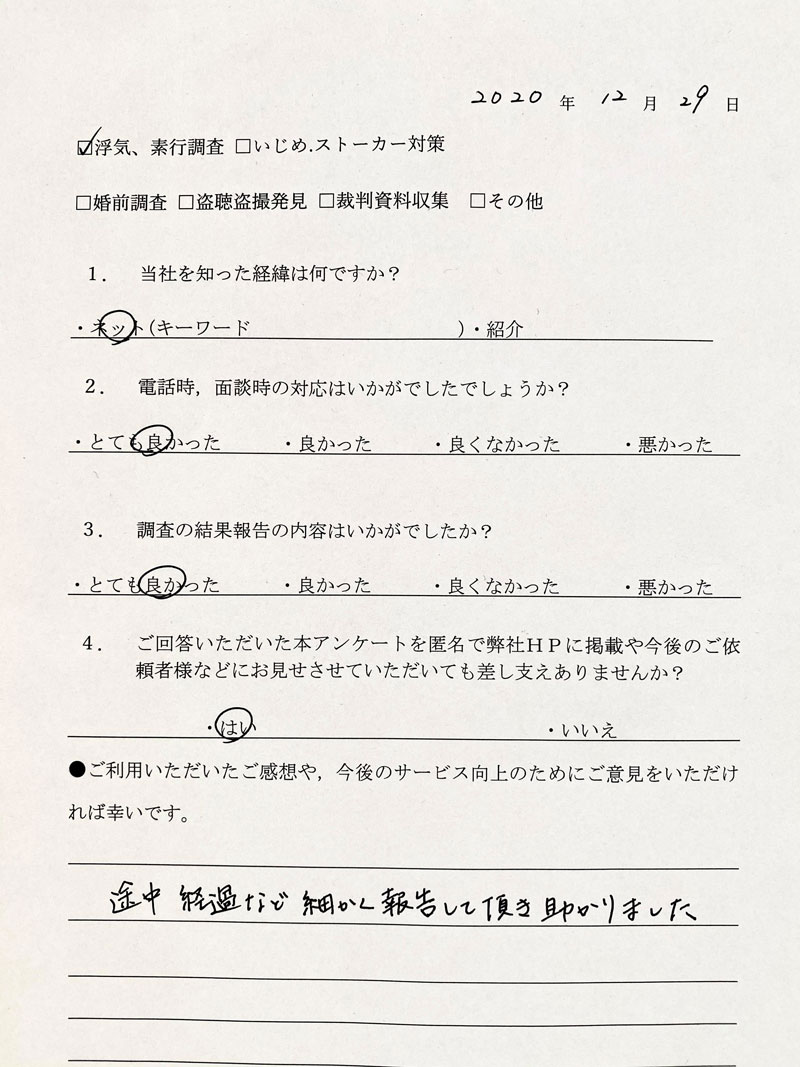 2020 年 12 月 29 日
☑浮気、素行調査 □いじめ.ストーカー対策
□婚前調査 □盗聴盗撮発見 □裁判資料収集 □その他
1. 当社を知った経緯は何ですか？
・ネット(キーワード )・紹介
2. 電話時，面談時の対応はいかがでしたでしょうか？
・とても良かった ・良かった ・良くなかった ・悪かった
3. 調査の結果報告の内容はいかがでしたか？
・とても良かった ・良かった ・良くなかった ・悪かった
4. ご回答いただいた本アンケートを匿名で弊社ＨＰに掲載や今後のご依
頼者様などにお見せさせていただいても差し支えありませんか？
・はい ・いいえ
●ご利用いただいたご感想や，今後のサービス向上のためにご意見をいただけ
れば幸いです。
途中 経過など 細かく 報告して頂き 助かりました